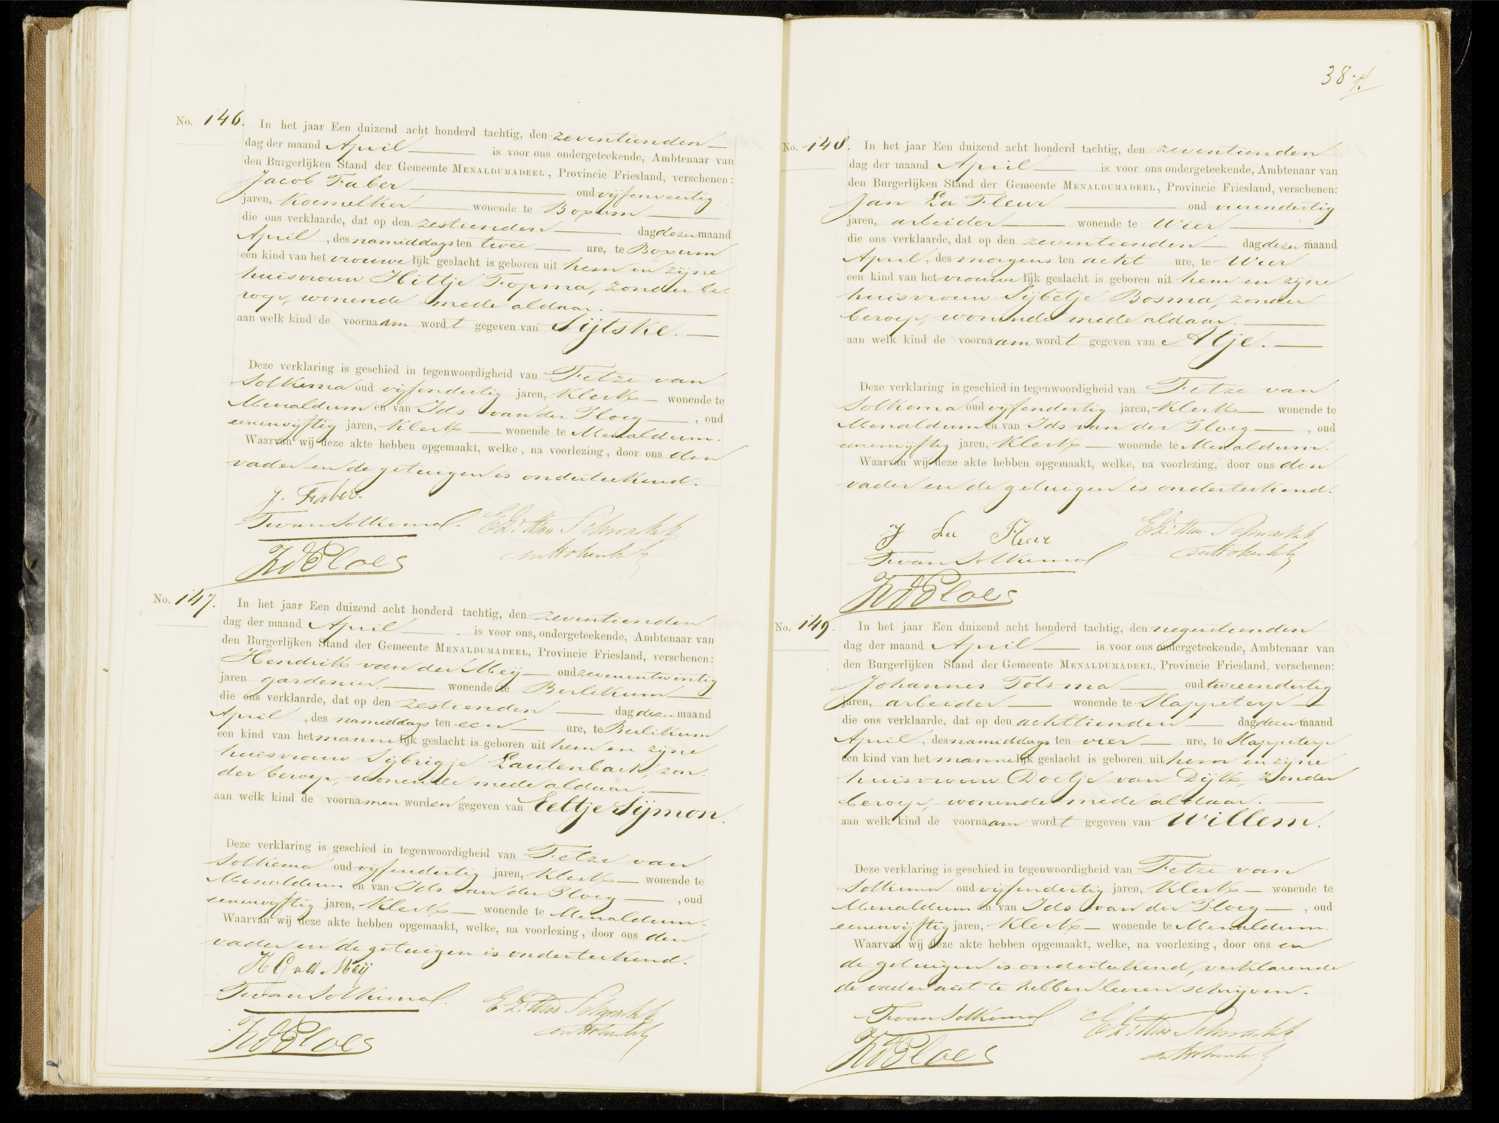 No. 146. In het jaar Een duizend acht honderd tachtig, den zeventienden
dag der maand April is voor ons ondergeteekende, Ambtenaar van
den Burgerlijken Stand der Gemeente MENALDUMADEEL, Provincie Friesland, verschenen:
Jacob Faber oud vijfenveertig
jaren, koemelker wonende te Boxum
die ons verklaarde, dat op den zestienden dag dezer maand
April, des namiddags ten twee ure, te Boxum
een kind van het vrouwelijk geslacht is geboren uit hem en zijne
huisvrouw Hiltje Fopma, zonder be
roep, wonende mede aldaar.
aan welk kind de voornaam wordt gegeven van Sijtske.
Deze verklaring is geschied in tegenwoordigheid van Fetze van
Solkema oud vijfendertig jaren, Klerk wonende te
Menaldum en van Ids van der Ploeg, oud
eenenvijftig jaren, Klerk wonende te Menaldum.
Waarvan wij deze akte hebben opgemaakt, welke, na voorlezing, door ons den
vader en de getuigen is onderteekend.
J. Faber.
F van Solkema.
No. 147. In het jaar Een duizend acht honderd tachtig, den zeventienden
dag der maand April is voor ons, ondergeteekende, Ambtenaar van
den Burgerlijken Stand der Gemeente MENALDUMADEEL, Provincie Friesland, verschenen:
Hendrik van der Meij oud zevenentwintig
jaren gardenier wonende te Berlikum
die ons verklaarde, dat op den zestienden dag dezer maand
April, des namiddags ten een ure, te Berlikum
een kind van het mannelijk geslacht is geboren uit hem en zijne
huisvrouw Sijbrigje Lautenbach, zon
der beroep, wonende mede aldaar.
aan welk kind de voornamen worden gegeven van Eeltje Sijmon.
Deze verklaring is geschied in tegenwoordigheid van Fetze van
Solkema oud vijfendertig jaren, Klerk wonende te
Menaldum en van Ids van der Ploeg, oud
eenenvijftig jaren, Klerk wonende te Menaldum.
Waarvan wij deze akte hebben opgemaakt, welke, na voorlezing, door ons den
vader en de getuigen is onderteekend.
H v d Meij
F van Solkema.
38
No. 148. In het jaar Een duizend acht honderd tachtig, den zeventienden
dag der maand April is voor ons ondergeteekende, Ambtenaar van
den Burgerlijken Stand der Gemeente MENALDUMADEEL, Provincie Friesland, verschenen:
Jan La Fleur oud vierendertig
jaren, arbeider wonende te Wier
die ons verklaarde, dat op den zeventienden dag dezer maand
April, des morgens ten acht ure, te Wier
een kind van het vrouwelijk geslacht is geboren uit hem en zijne
huisvrouw Sijbetje Bosma, zonder
beroep, wonende mede aldaar.
aan welk kind de voornaam wordt gegeven van Atje.
Deze verklaring is geschied in tegenwoordigheid van Fetze van
Solkema oud vijfendertig jaren, Klerk wonende te
Menaldum en van Ids van der Ploeg, oud
eenenvijftig jaren, Klerk wonende te Menaldum.
Waarvan wij deze akte hebben opgemaakt, welke, na voorlezing, door ons den
vader en de getuigen is onderteekend.
J La Fleur
F van Solkema
No. 149. In het jaar Een duizend acht honderd tachtig, den negentienden
dag der maand April is voor ons ondergeteekende, Ambtenaar van
den Burgerlijken Stand der Gemeente MENALDUMADEEL, Provincie Friesland, verschenen:
Johannes Tolsma oud tweeendertig
jaren, arbeider wonende te Slappeterp
die ons verklaarde, dat op den achttienden dag dezer maand
April, des namiddags ten vier ure, te Slappeterp
een kind van het mannelijk geslacht is geboren uit hem en zijne
huisvrouw Doetje van Dijk, zonder
beroep, wonende mede aldaar.
aan welk kind de voornaam wordt gegeven van Willem.
Deze verklaring is geschied in tegenwoordigheid van Fetze van
Solkema oud vijfendertig jaren, Klerk wonende te
Menaldum en van Ids van der Ploeg, oud
eenenvijftig jaren, Klerk wonende te Menaldum.
Waarvan wij deze akte hebben opgemaakt, welke, na voorlezing, door ons en
de getuigen is onderteekend, verklarende
de vader niet te hebben leeren schrijven.
F van Solkema